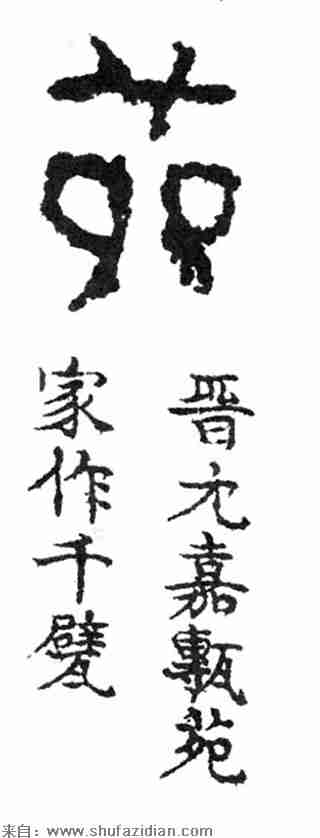 苑
晋元嘉甎苑
家作千甓
来自：www.shufazidian.com